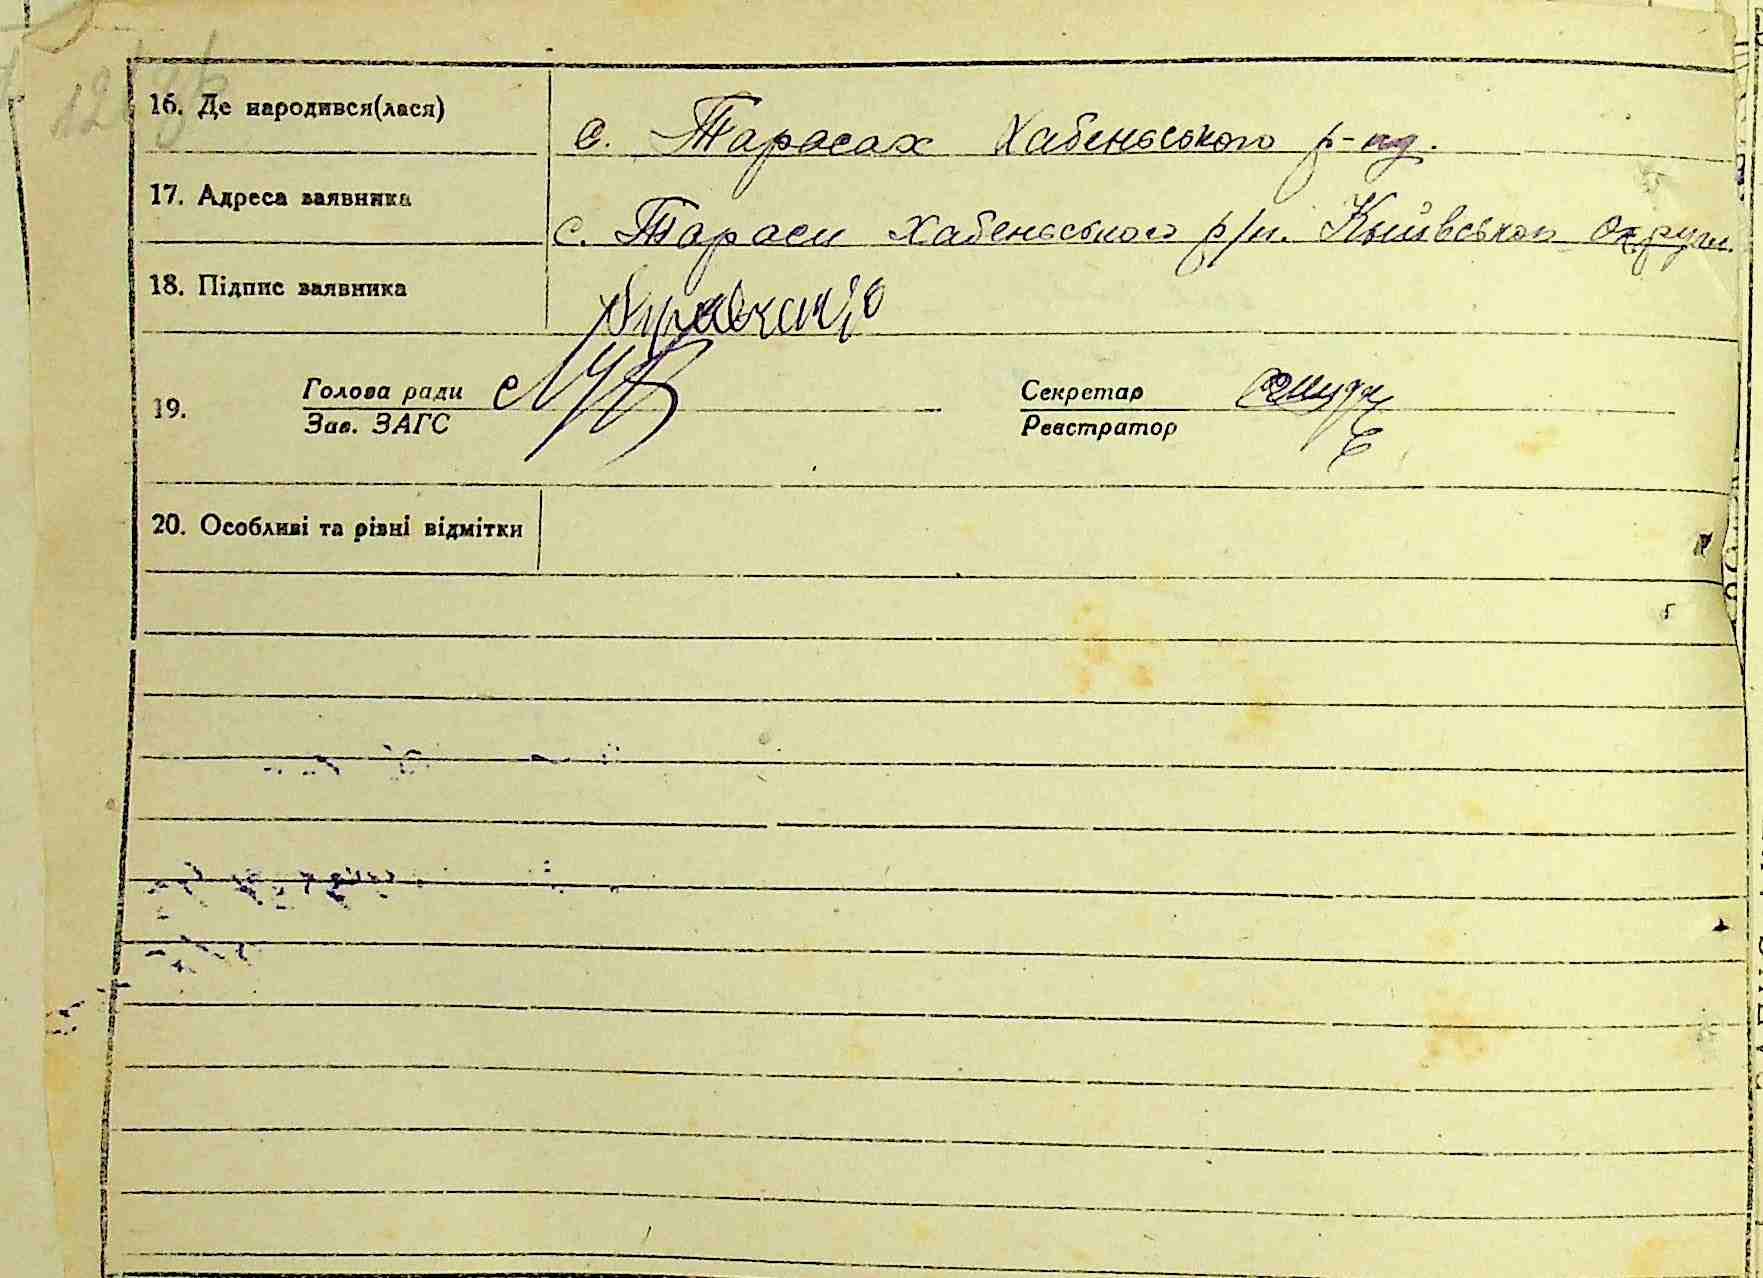 16. Де народився(лася) с. Тарасах Хабенського р-ну.
17. Адреса заявника с. Тараси Хабенського р/н. Київської округи.
18. Підпис заявника
19. Голова ради Секретар
Зав. ЗАГС Реєстратор
20. Особливі та різні відмітки